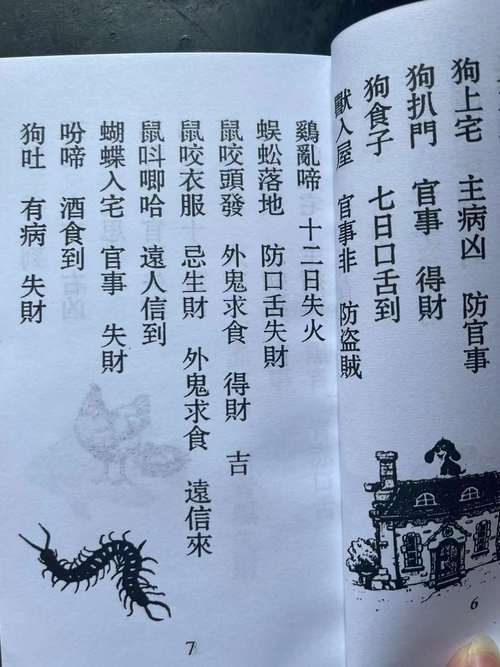 狗上宅 主病凶 防官事
狗扒門 官事 得財
狗食子 七日口舌到
獸入屋 官事非 防盗賊
6
鷄亂啼 十二日失火
蜈蚣落地 防口舌失財
鼠咬頭發 外鬼求食 得財 吉
鼠咬衣服 忌生財 外鬼求食 遠信來
鼠呌唧哈 遠人信到
蝴蝶入宅 官事 失財
吩啼 酒食到
狗吐 有病 失財
7